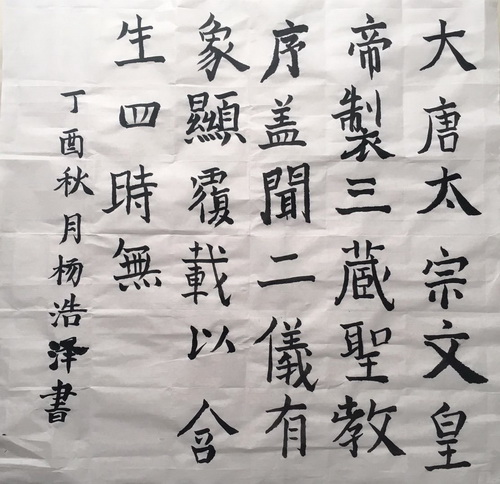 大唐太宗文皇
帝製三蔵聖教
序盖聞二儀有
象顯覆載以含
生四時無
丁酉秋月杨浩泽書